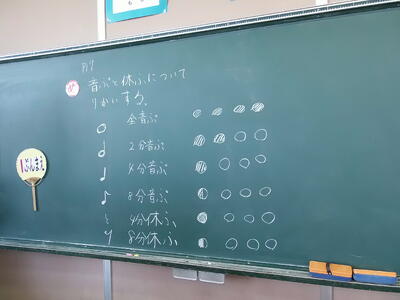 音ぷと休ふについて
りかいする。
全音ぷ
2分音ぷ
4分音ぷ
8分音ぷ
4分休ふ
8分休ふ
1ぷんまえ